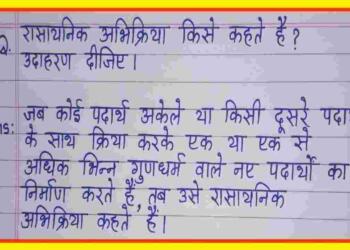 Q. रासायनिक अभिक्रिया किसे कहते हैं?
उदाहरण दीजिए।
ns: जब कोई पदार्थ अकेले या किसी दूसरे पदा
के साथ क्रिया करके एक या एक से
अधिक भिन्न गुणधर्म वाले नए पदार्थों का
निर्माण करते हैं, तब उसे रासायनिक
अभिक्रिया कहते हैं।